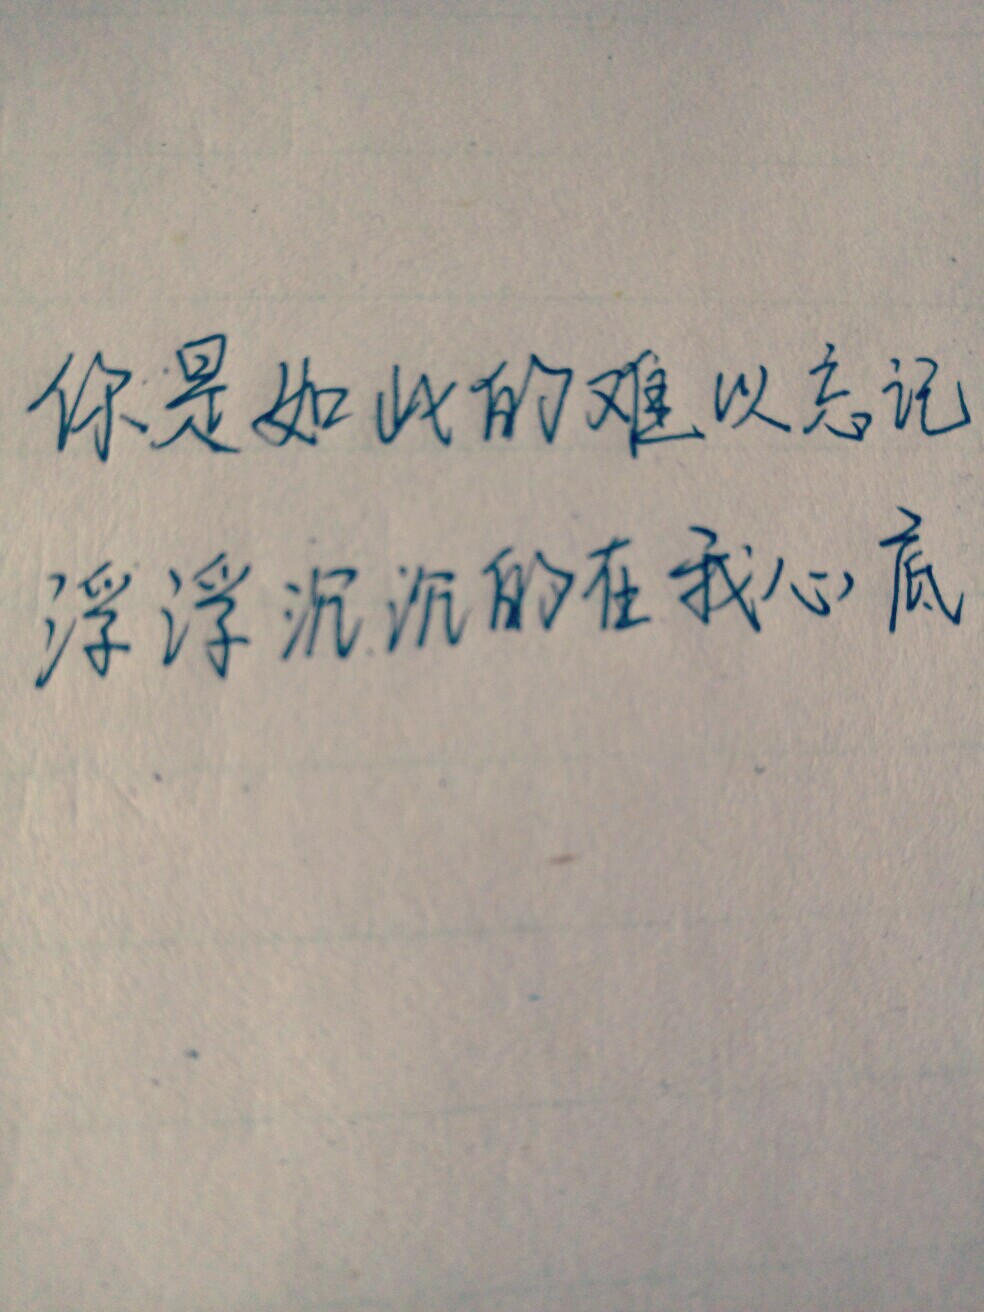 你是如此的难以忘记
浮浮沉沉的在我心底